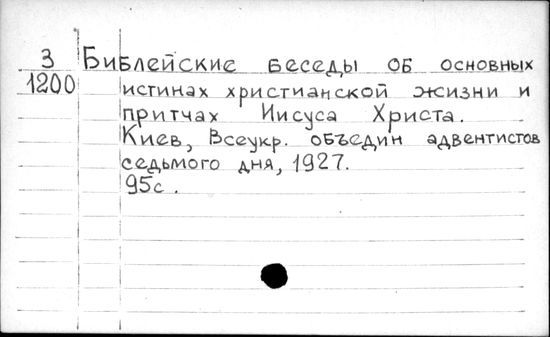 3 Библейские беседы об основных
1200 истинах христианской жизни и
притчах Иисуса Христа.
Киев, Всеукр. объедин адвентистов
седьмого дня, 1927.
95с.